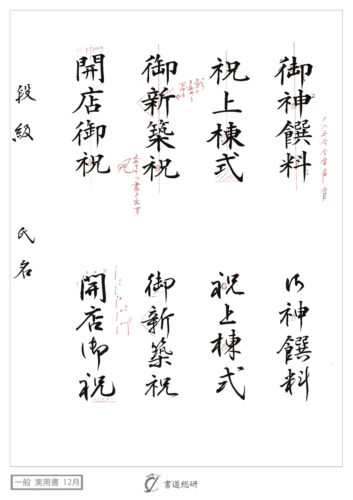 御神饌料
祝上棟式
御新築祝
開店御祝
段級
氏名
御神饌料
祝上棟式
御新築祝
開店御祝
一般 実用書 12月
書道総研